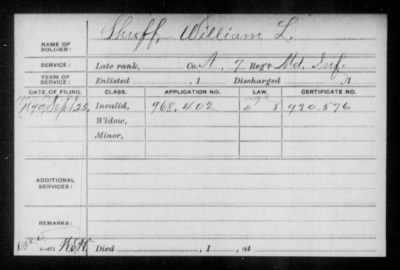 NAME OF SOLDIER: Shuff, William L.
SERVICE: Late rank, Co. A, 7 Reg't Md. Inf.
TERM OF SERVICE: Enlisted , 1 Discharged , 1
DATE OF FILING. CLASS. APPLICATION NO. LAW. CERTIFICATE NO.
1890, Sept 25, Invalid, 968,402 930,576
Widow,
Minor,
ADDITIONAL SERVICES:
REMARKS:
Died , 1 , at